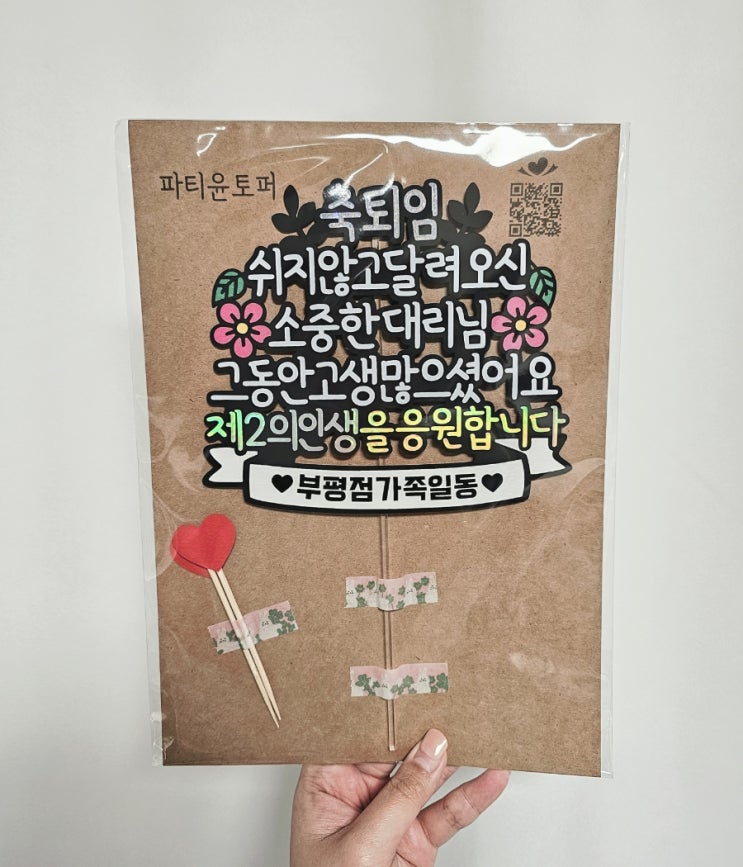 파티윤토퍼
축퇴임
쉬지않고달려오신
소중한대리님
그동안고생많으셨어요
제2의인생을응원합니다
부평점가족일동